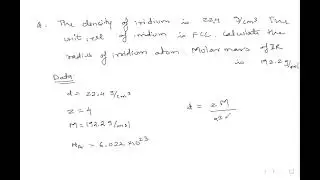 Q. The density of iridium is 22.4 g/cm³ The
unit cell of iridium is FCC. Calculate the
radius of iridium atom Molar mass of IR
is 192.2 g/mol
Data
d = 22.4 g/cm³
z = 4
M = 192.2 g/mol
NA = 6.022 × 10²³
d = zM